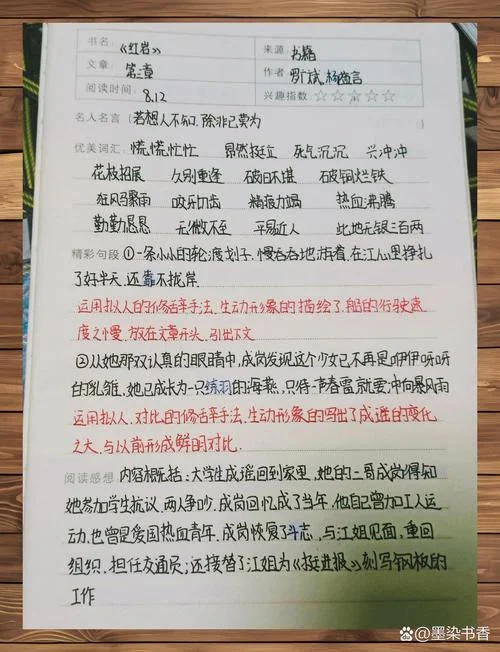 书名: 《红岩》 来源: 书籍
文章: 第三章 作者: 罗广斌 杨益言
阅读时间: 8.12 兴趣指数: ☆☆☆☆☆
名人名言: 若想人不知.除非己莫为
优美词汇: 慌慌忙忙 昂然挺立 死气沉沉 兴冲冲
花枝招展 久别重逢 破旧不堪 破铜烂铁
狂风骤雨 咬牙切齿 精疲力竭 热血沸腾
勤勤恳恳 无微不至 平易近人 此地无银三百两
精彩句段: ①一条小小的轮渡划子,慢吞吞地拼着,在江心里挣扎
了好半天,还靠不拢岸.
运用拟人的修辞手法,生动形象的描绘了,船的行驶速
度之慢,放在文章开头,引出下文
②从她那双认真的眼睛中,成岗发现这个少女已不再是咿伊呀呀
的乳雏,她已成长为一只练羽的海燕,只待一声春雷就要冲向暴风雨
运用拟人、对比的修辞手法,生动形象的写出了成瑶的变化
之大,与以前形成鲜明对比.
阅读感想: 内容概括:大学生成瑶回到家里,她的二哥成岗得知
她参加学生抗议,两人争吵,成岗回忆成了当年,他自己曾加工人运
动,也曾是爱国热血青年,成岗恢复了斗志,与江姐见面,重回
组织,担任交通员;还接替了江姐为《挺进报》刻写钢板的
工作
百家号/墨染书香